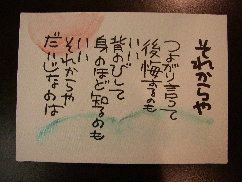 それからや
つよがり言って
後悔するのも
いい
背のびして
身のほど知るのも
いい
それからや
だいじなのは